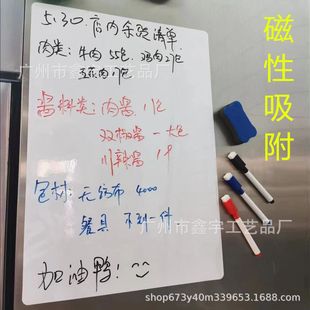 5.30.店内余货清单
肉类：牛肉 55包，鸡肉27包
五花肉17包
酱料类：肉酱 1化
双椒酱 一大包
川辣酱 1个
包材：无纺布 4000
餐具 不到一件
加油鸭！
磁性吸附
广州市鑫宇工艺品厂
广州市鑫宇工艺品厂
shop673y40m339653.1688.com